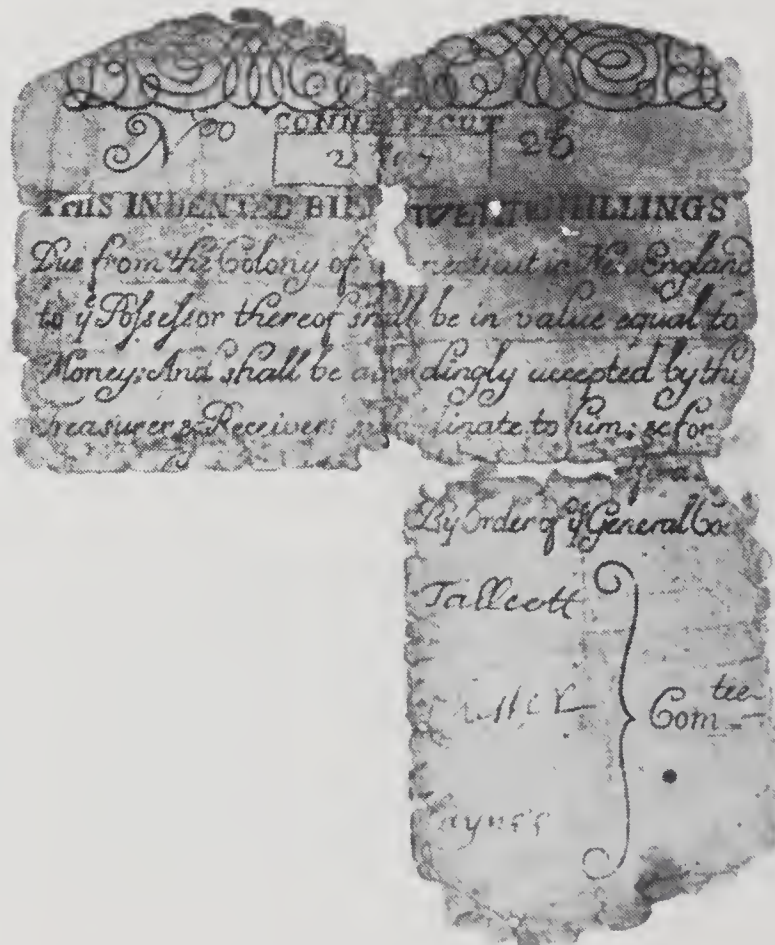 CONNECTICUT
No 2
THIS INDENTED BILL TWENTY SHILLINGS
Due from the Colony of Connecticut in New England
to yͤ Poſseſsor thereof shall be in value equal to
Money; And shall be accordingly accepted by the
Treasurer, & Receivers subordinate to him; & for
By Order of yͤ General Co
Tallcott
Com tee